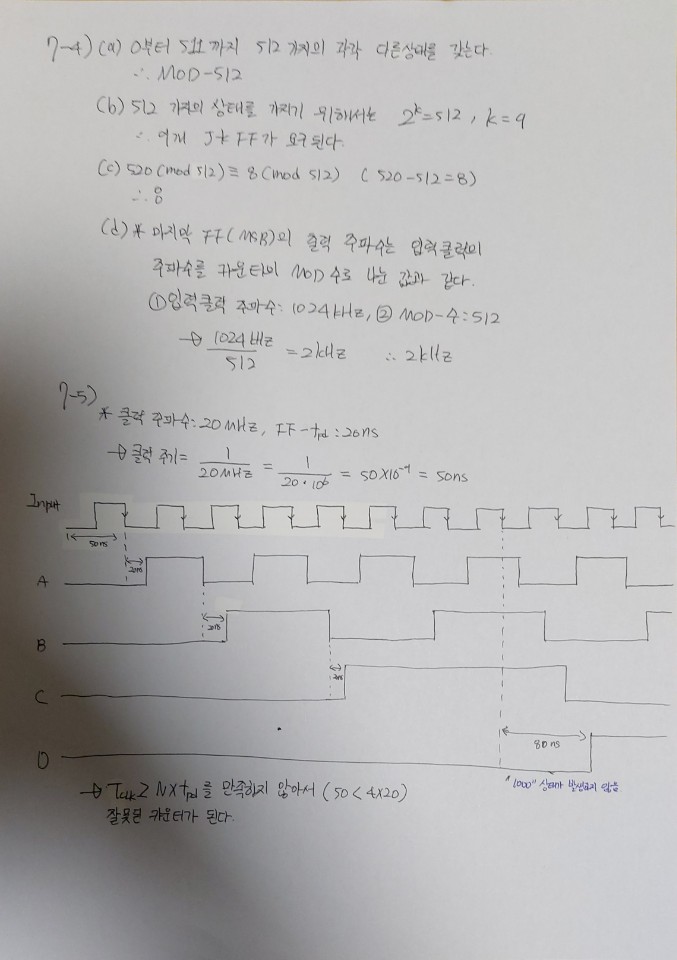 7-4) (a) 0부터 511까지 512 가지의 각각 다른상태를 갖는다.
∴ MOD-512
(b) 512 가지의 상태를 가지기 위해서는 2^k=512, k=9
∴ 9개 JK FF가 요구된다.
(c) 520 (mod 512) ≡ 8 (mod 512) (520-512=8)
∴ 8
(d) * 마지막 FF(MSB)의 출력 주파수는 입력클럭의
주파수를 카운터의 MOD 수로 나눈 값과 같다.
①입력클럭 주파수: 1024kHz, ② MOD-수:512
→ 1024kHz/512 = 2kHz ∴ 2kHz
7-5)
* 클럭 주파수: 20MHz, FF-tpd : 20ns
→ 클럭 주기= 1/20MHz = 1/20·10^6 = 50×10^-9 = 50ns
Input
50ns
20ns
A
20ns
B
C
80ns
D
"1000" 상태가 발생하지 않음
→ Tclk ≥ N×tpd 를 만족하지 않아서 (50<4×20)
잘못된 카운터가 된다.